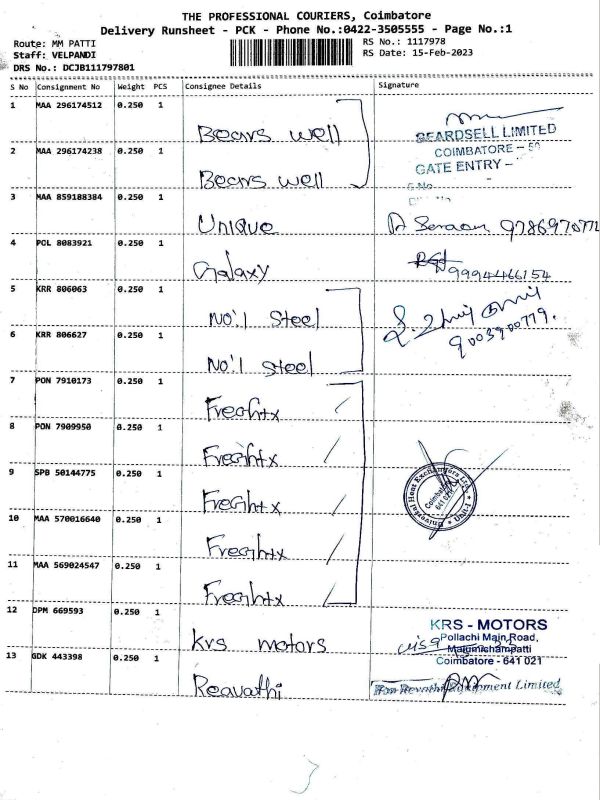 THE PROFESSIONAL COURIERS, Coimbatore
Delivery Runsheet - PCK - Phone No.:0422-3505555 - Page No.:1
Route: MM PATTI
RS No.: 1117978
Staff: VELPANDI
RS Date: 15-Feb-2023
DRS No.: DCJB111797801
S No Consignment No Weight PCS Consignee Details Signature
1 MAA 296174512 0.250 1
Bears well
BEARDSELL LIMITED
COIMBATORE - 50
2 MAA 296174238 0.250 1
GATE ENTRY -
Bears well
3 MAA 859188384 0.250 1
Unique
4 POL 8083921 0.250 1
Galaxy
9994466154
5 KRR 806063 0.250 1
No:1 Steel
6 KRR 806627 0.250 1
9003900779.
No'1 Steel
7 PON 7910173 0.250 1
Freghtx
8 PON 7909950 0.250 1
Freghtx
9 SPB 50144775 0.250 1
Freghtx
Universal Heat Exchangers Ltd.
Coimbatore
641 021
10 MAA 570016640 0.250 1
Freghtx
11 MAA 569024547 0.250 1
Freghtx
12 DPM 669593 0.250 1
krs motors
KRS - MOTORS
Pollachi Main Road,
Malumichampatti
Coimbatore - 641 021
13 GDK 443398 0.250 1
Reavathi
For Revathi Equipment Limited